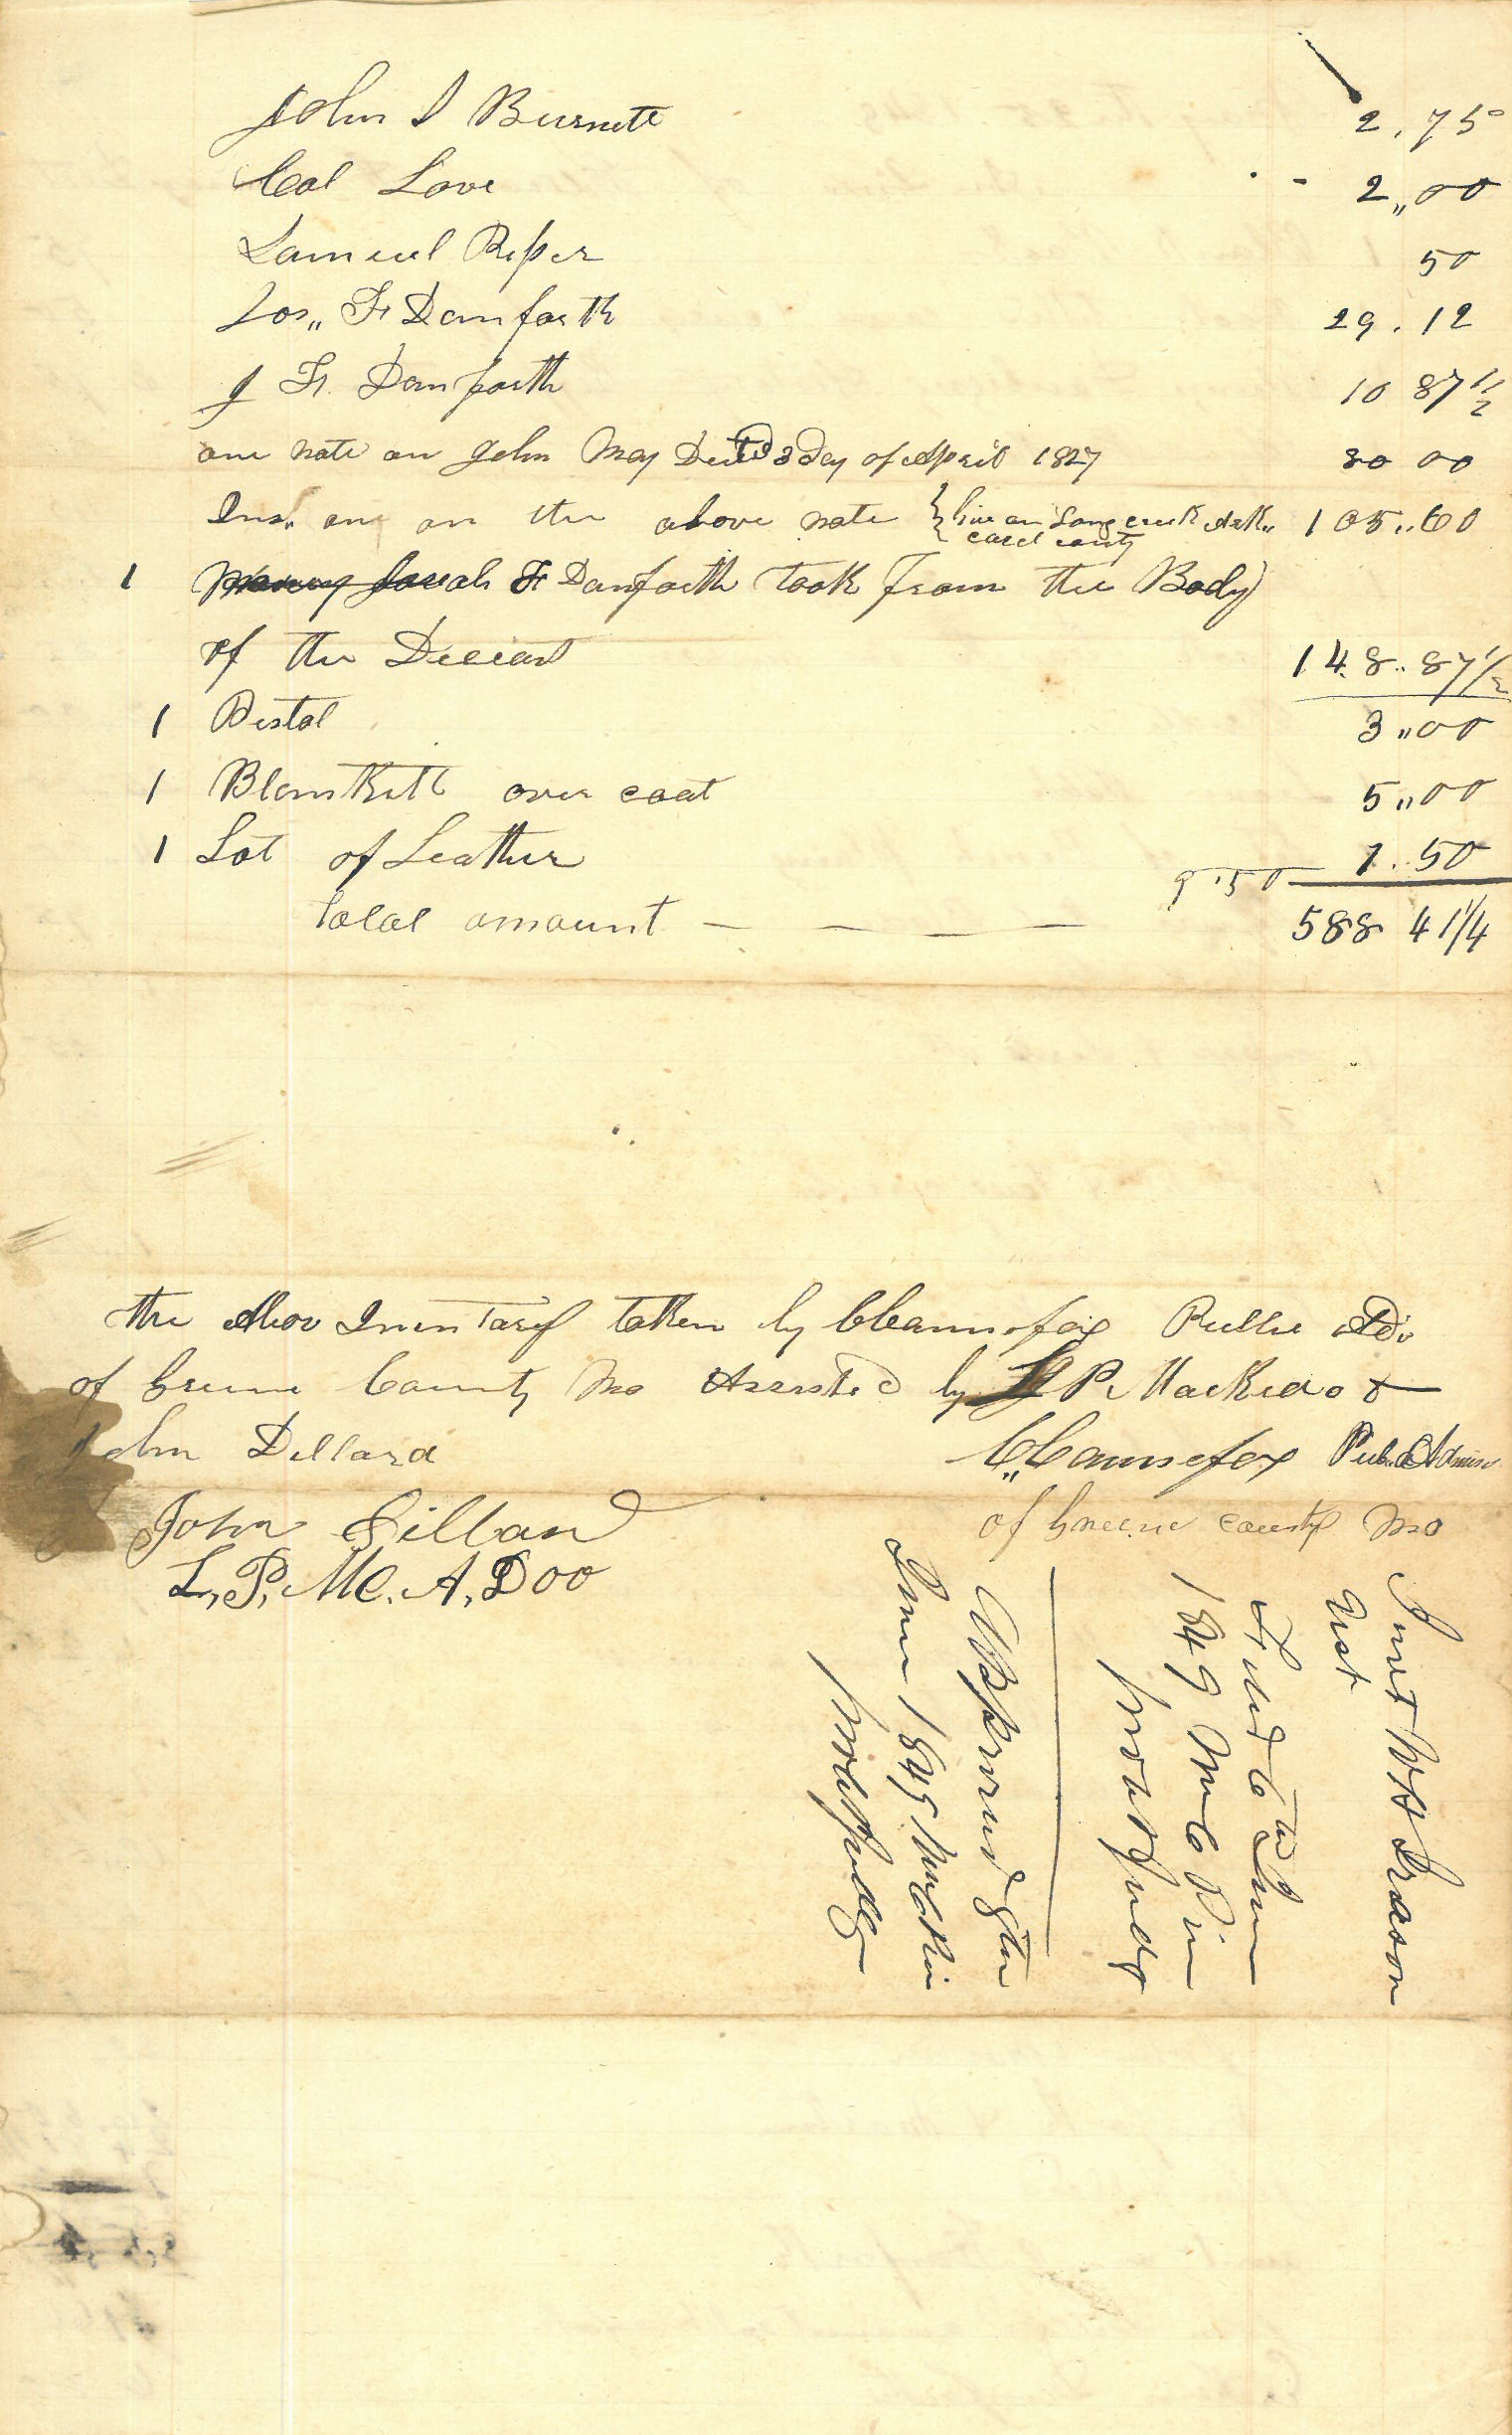 John S Burnett 2.75
Col Love 2,,00
Samuel Piper 50
Jos,, F Danforth 29.12
J F. Danforth 10 87 1/2
one note on John May Due 3 Day of April 1827 80 00
Ins. on the above note { live on Long creek Ark,, 105..60
caril county
1 Money Josiah F Danforth took from the Body
of the Deceasd 148..87 1/2
1 Pistol 3,,00
1 Blankett over coat 5,,00
1 Lot of Leather 1..50
9.50
total amount — — — — 588 41 1/4
the Abov Inventary taken by C Cannefax Public Adr
of Greene County Mo Assisted by L P. Mackado &
John Dillard
C,, Cannefax Pub. Admin
of Greene county Mo
John Dillard
L,, P. MC. A. Doo
Just W H Grason
Est
Filed 6th June
1849
Prob Judge
Approved 9th
June 1849
Prob Judge